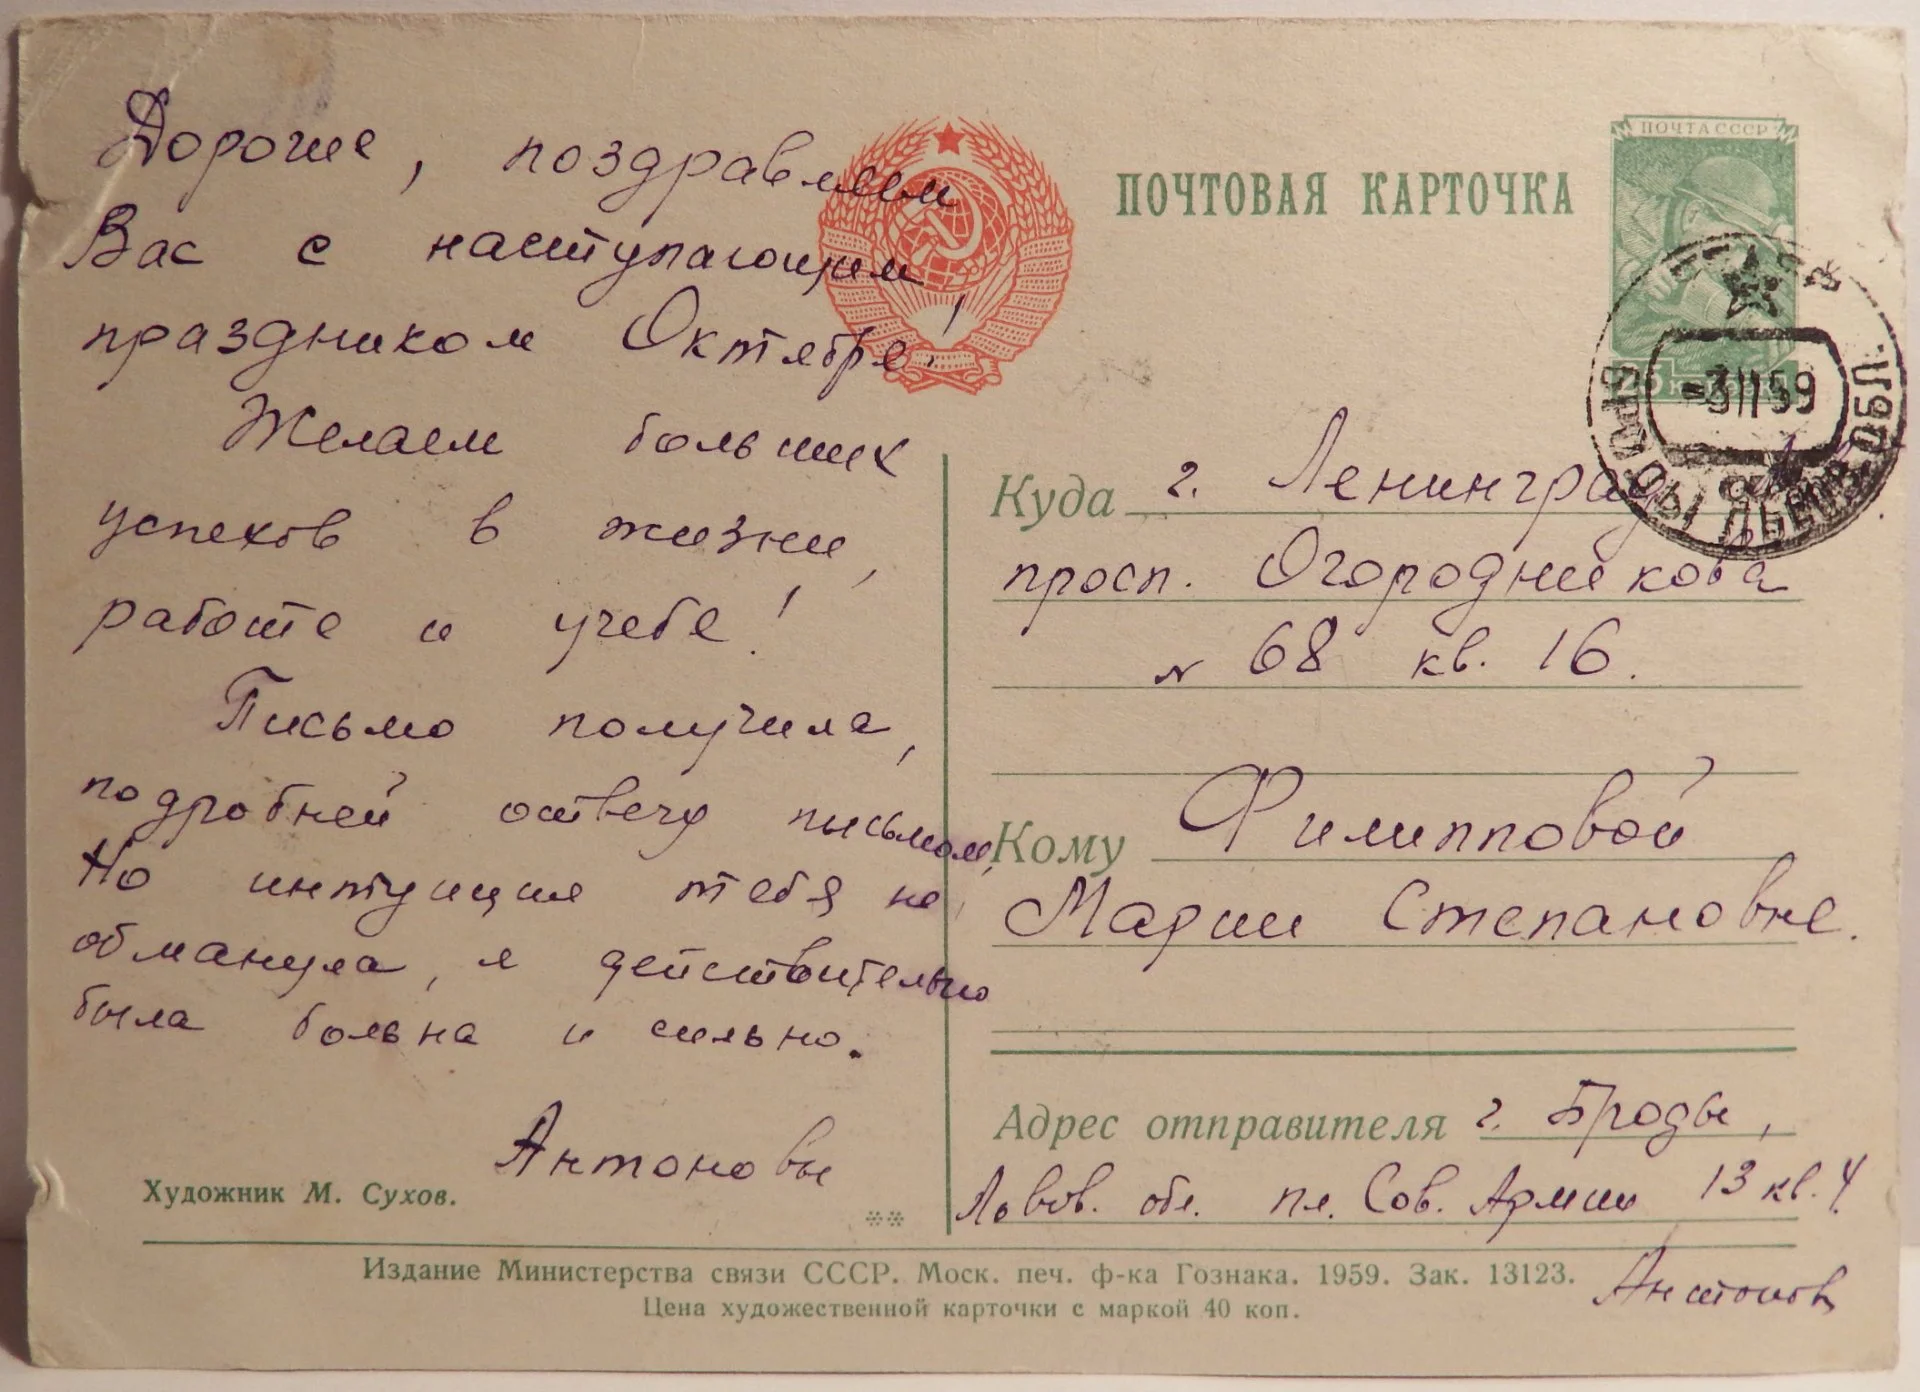 Дорогие, поздравляем
Вас с наступающим
праздником Октября!
Желаем больших
успехов в жизни,
работе и учебе!
Письмо получила,
подробней отвечу письмом,
Но интуиция тебя не
обманула, я действительно
была больна и сильно.
Антоновы
Художник М. Сухов.
ПОЧТОВАЯ КАРТОЧКА
ПОЧТА СССР
25 коп
СССР
-3 11 59
БРОДЫ ЛЬВОВ ОБЛ.
Куда г. Ленинград
просп. Огородникова
N 68 кв. 16.
Кому Филипповой
Марии Степановне.
Адрес отправителя г. Броды,
Львов. обл. пл. Сов. Армии 13 кв. 4
Антонов
Издание Министерства связи СССР. Моск. печ. ф-ка Гознака. 1959. Зак. 13123.
Цена художественной карточки с маркой 40 коп.